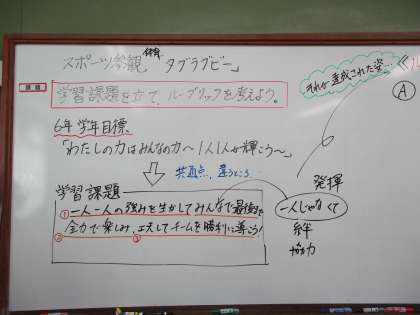 スポーツ参観 体育 「タグラグビー」
課題
学習課題を立て、ルーブリックを考えよう。
6年学年目標
「わたしの力はみんなの力〜1人1人が輝こう〜」
共通点、違うところ
学習課題
①一人一人の強みを生かしてみんなで最後まで
全力で楽しみ、工夫してチームを勝利に導こう!
② ③
それが達成された姿
Ⓐ
発揮
一人じゃなくて
絆
協力